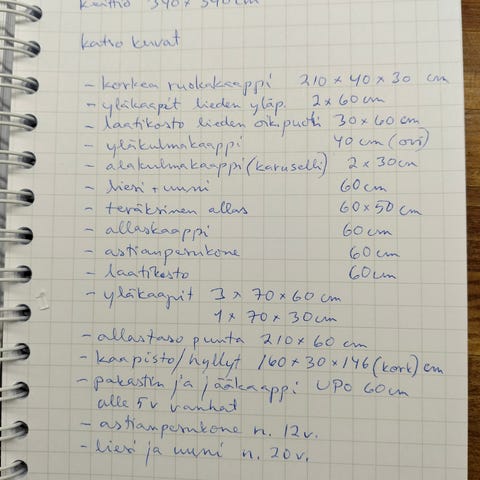 keittiö 340 x 340cm
katso kuvat
- korkea ruokakaappi 210 x 40 x 30 cm
- yläkaapit lieden yläp. 2 x 60cm
- laatikosto lieden oikpuoli 30 x 60 cm
- yläkulmakaappi 40 cm (ovi)
- alakulmakaappi (karuselli) 2 x 30cm
- liesi + uuni 60cm
- teräksinen allas 60 x 50 cm
- allaskaappi 60cm
- astianpesukone 60cm
- laatikosto 60cm
- yläkaapit 3 x 70 x 60 cm
1 x 70 x 30cm
- allastaso punta 210 x 60 cm
- kaapisto/hyllyt 160 x 30 x 146 (kork) cm
- pakastin ja jääkaappi UPO 60cm
alle 5v vanhat
- astianpesukone n. 12v.
- liesi ja uuni n. 20v.